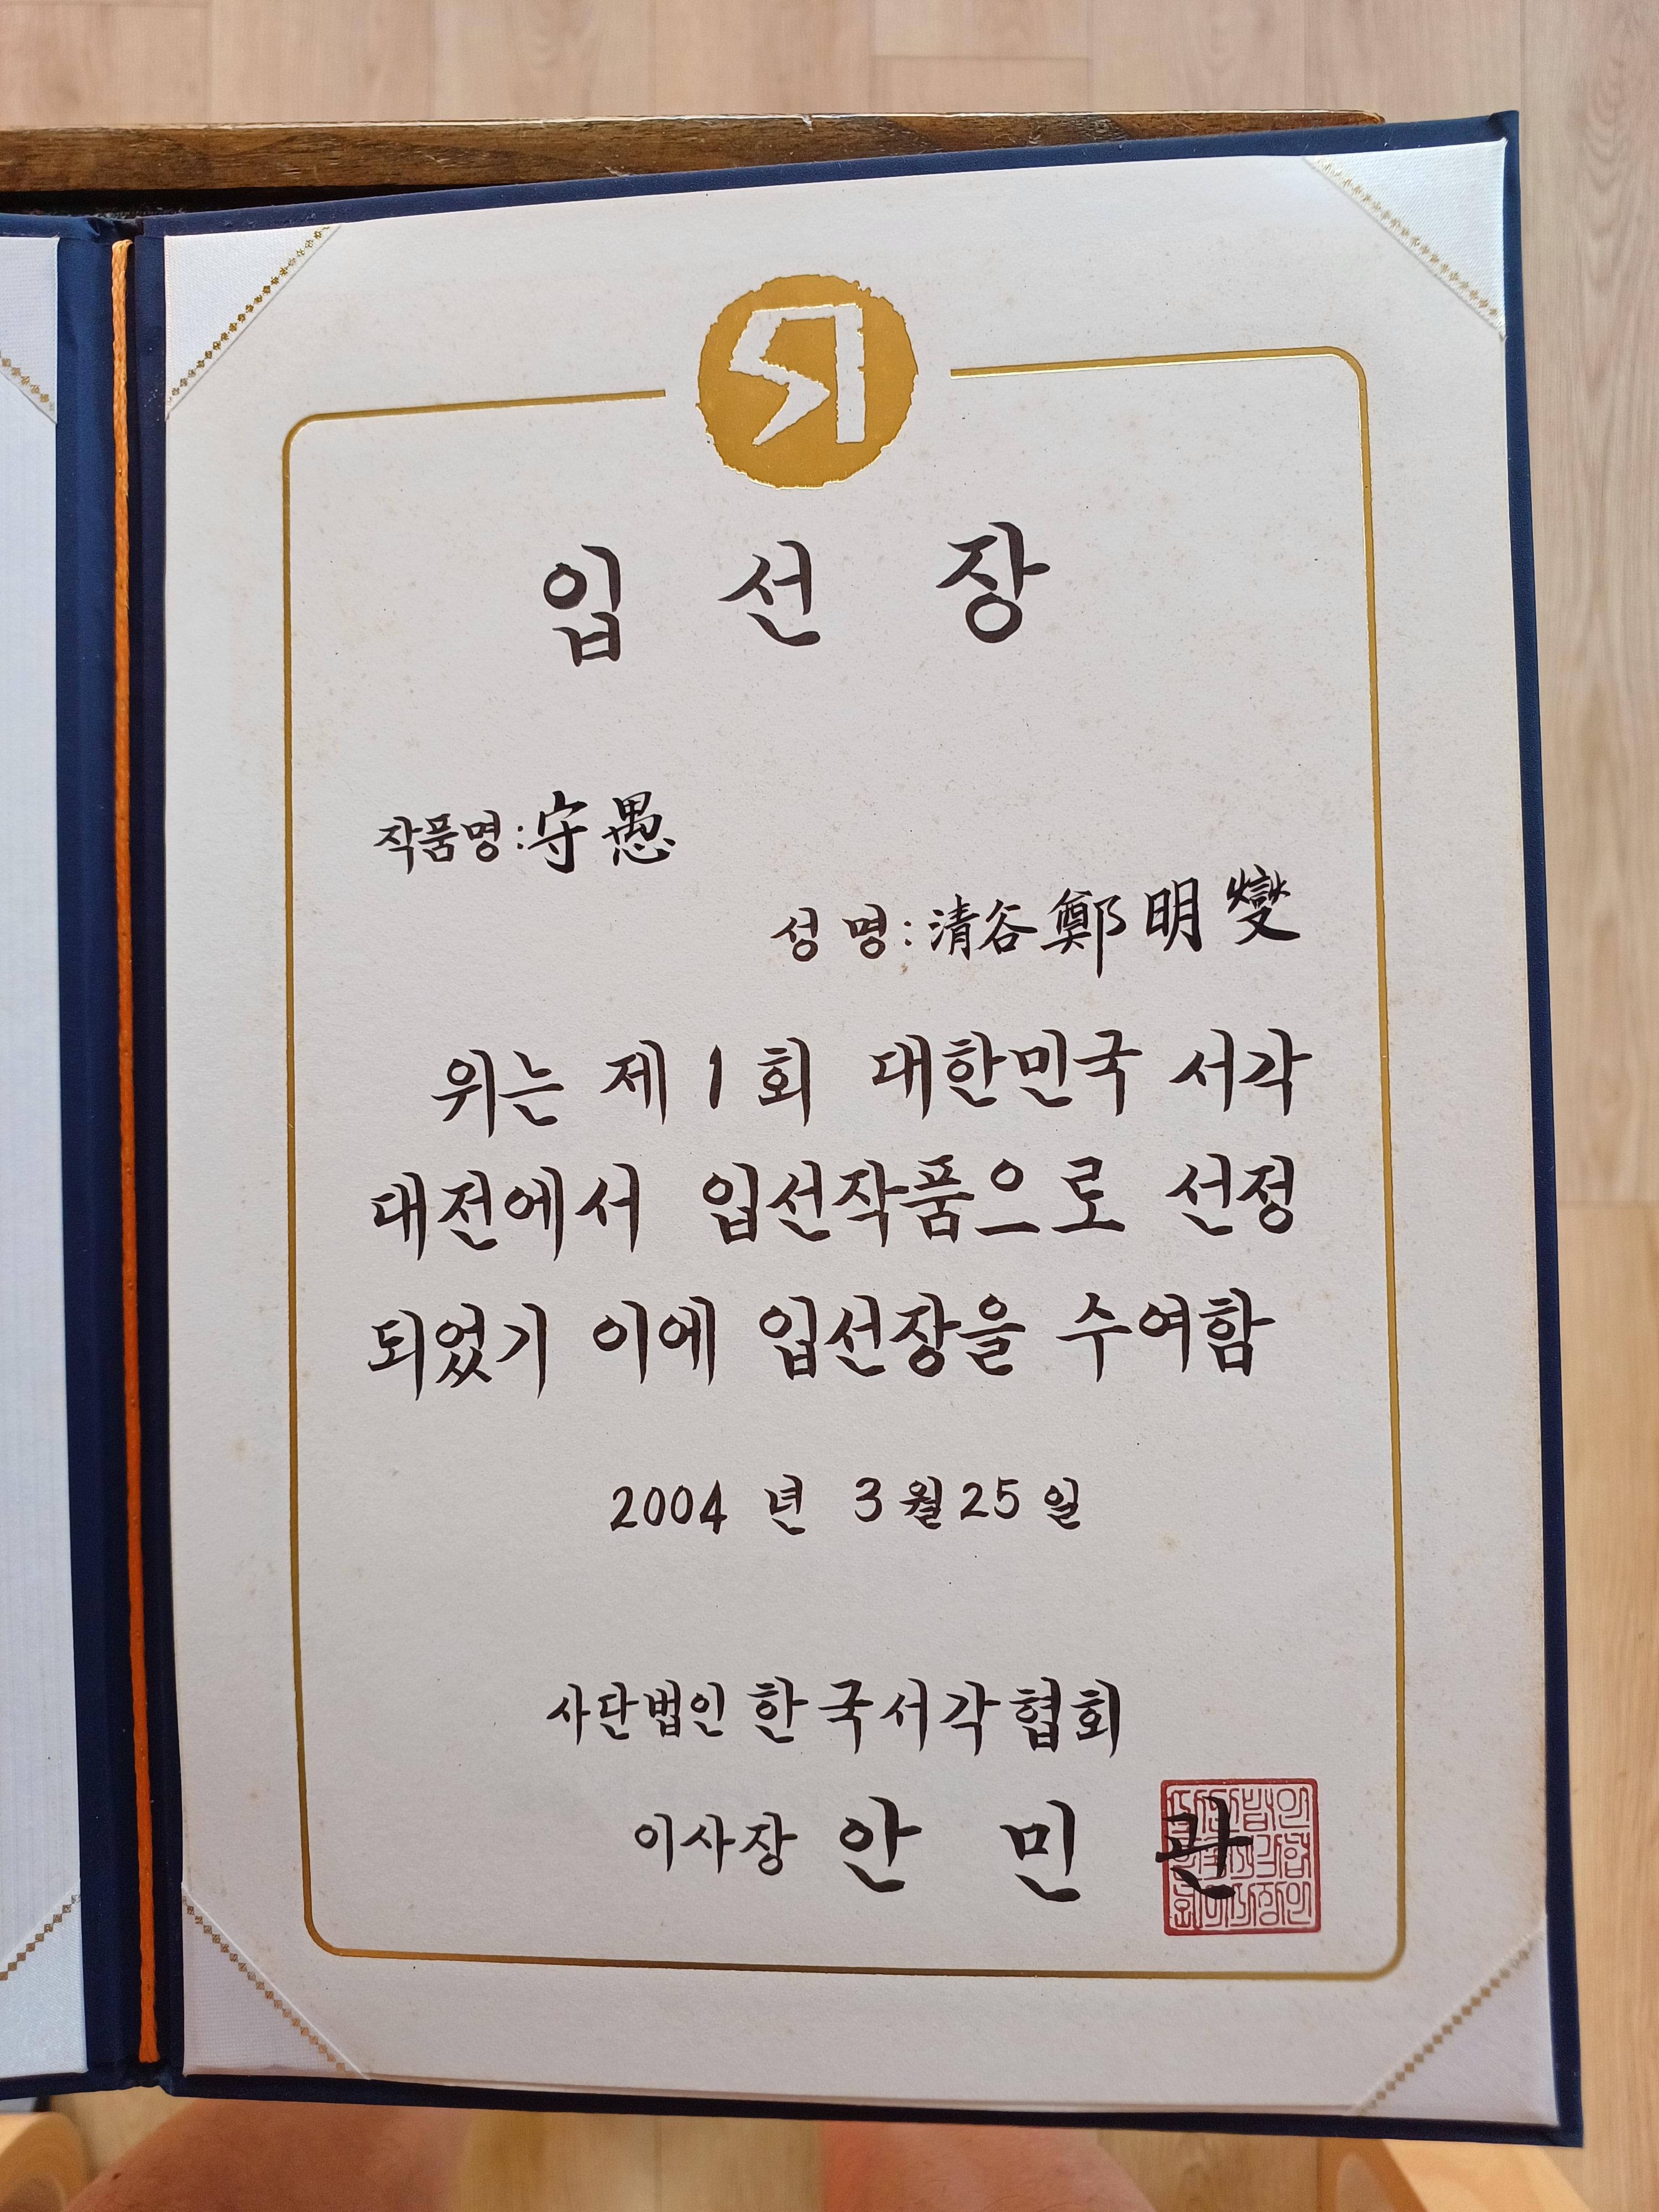 입선장
작품명:守愚
성명:清谷 鄭明燮
위는 제1회 대한민국 서각
대전에서 입선작품으로 선정
되었기 이에 입선장을 수여함
2004년 3월 25일
사단법인 한국서각협회
이사장 안민관